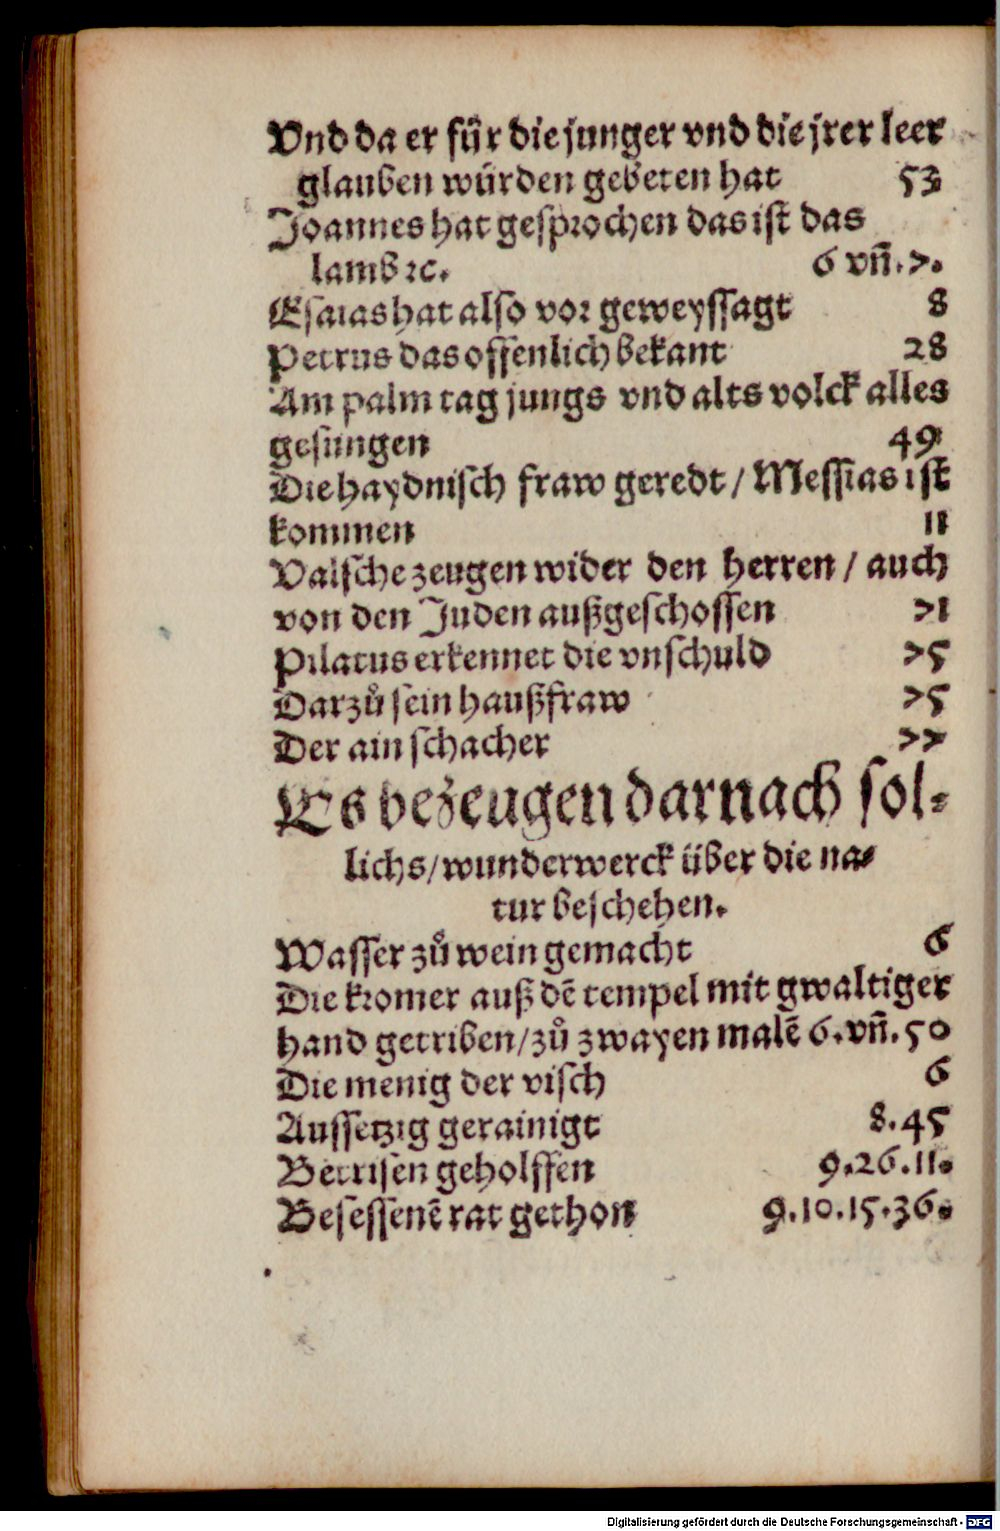 Vnd da er für die junger vnd die jrer leer
glauben würden gebeten hat 53
Joannes hat gesprochen das ist das
lamb ꝛc. 6 vñ.7.
Esaias hat also vor geweyssagt 8
Petrus das offenlich bekant 28
Am palm tag jungs vnd alts volck alles
gesungen 49
Die haydnisch fraw geredt / Messias ist
kommen 11
Valsche zeugen wider den herren / auch
von den Juden außgeschossen 71
Pilatus erkennet die vnschuld 75
Darzů sein haußfraw 75
Der ain schacher 77
Es bezeugen darnach sol⸗
lichs/wunderwerck über die na⸗
tur beschehen.
Wasser zů wein gemacht 6
Die kromer auß dẽ tempel mit gwaltiger
hand getriben/zů zwayen malẽ 6.vñ.50
Die menig der visch 6
Aussetzig gerainigt 8.45
Betrisen geholffen 9.26.11.
Besessenẽ rat gethon 9.10.15.36.
Digitalisierung gefördert durch die Deutsche Forschungsgemeinschaft - DFG